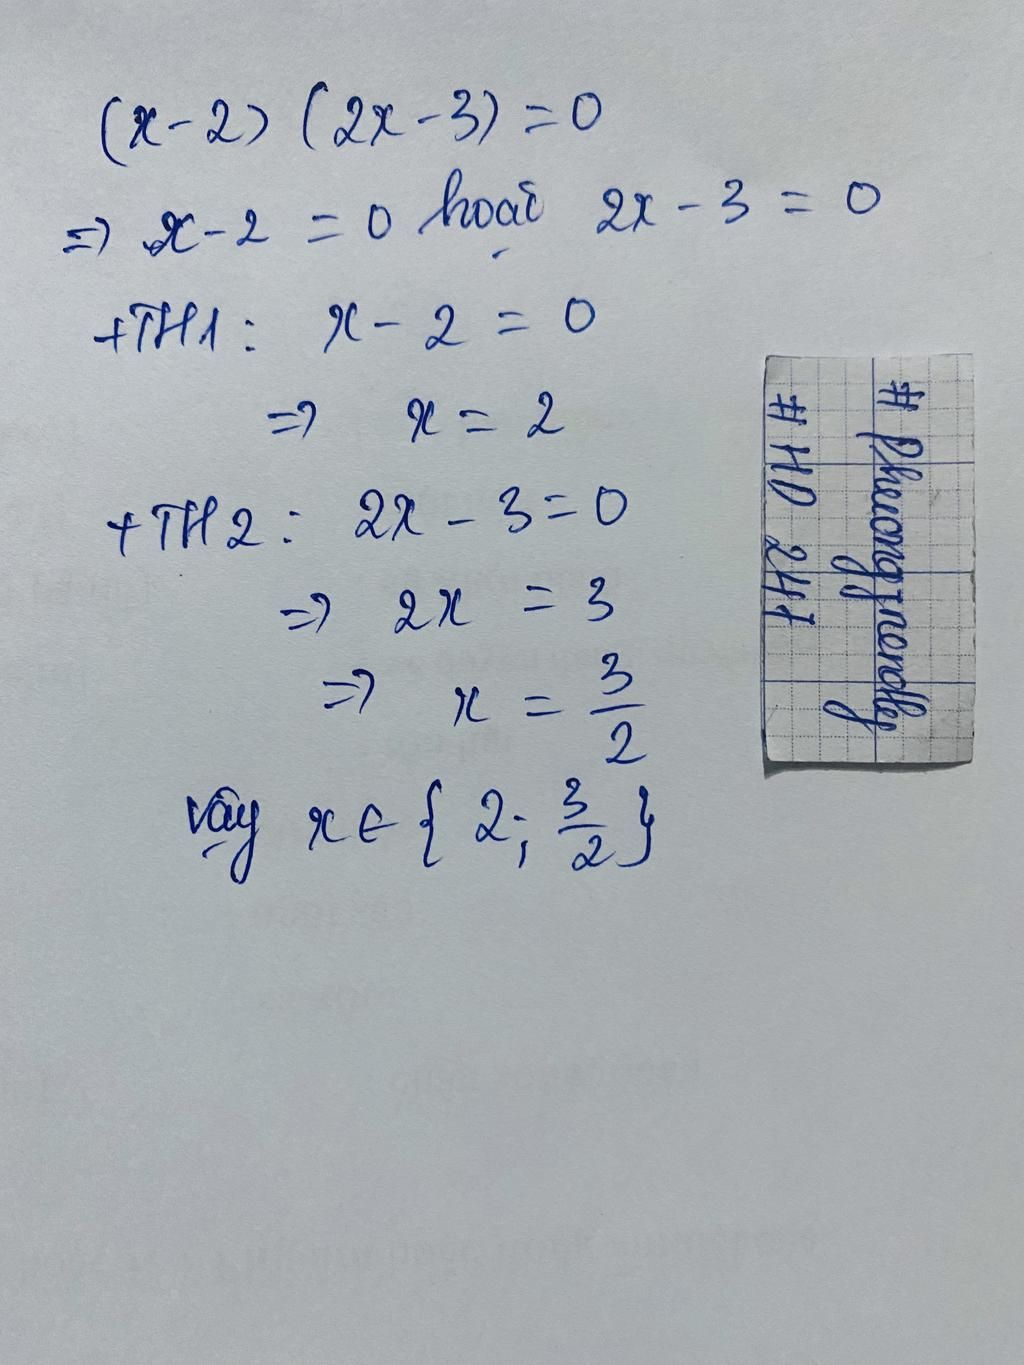 (x - 2) (2x - 3) = 0
=> x - 2 = 0 hoặc 2x - 3 = 0
+TH1: x - 2 = 0
=> x = 2
+TH2: 2x - 3 = 0
=> 2x = 3
=> x = 3/2
Vậy x ∈ { 2; 3/2 }
# HD 247